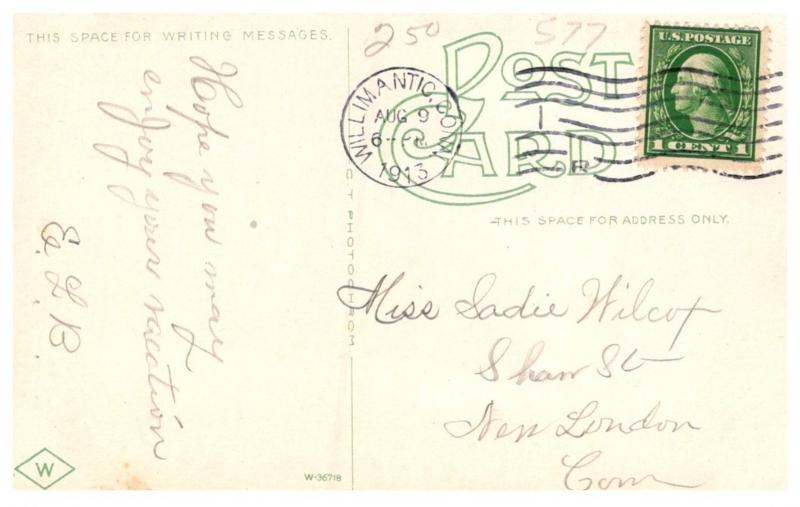 THIS SPACE FOR WRITING MESSAGES.
Hope you may
enjoy your vacation
E. L. B.
W
W-36718
250
577
POST CARD
WILLIMANTIC, CONN.
AUG 9
6
1913
U.S. POSTAGE
1 CENT 1
THIS SPACE FOR ADDRESS ONLY.
Miss Sadie Wilcox
Shaw St
New London
Conn